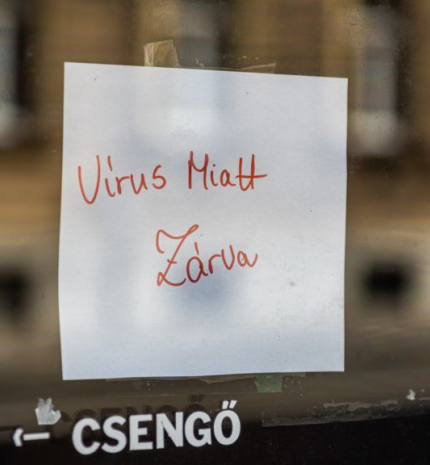 Vírus Miatt
Zárva
← CSENGŐ